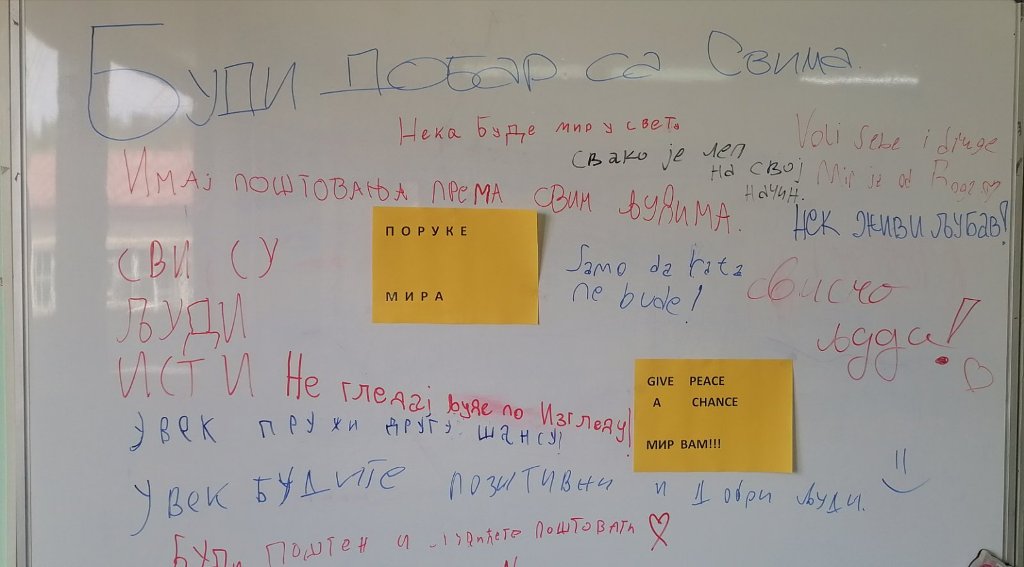 Буди добар са Свима.
Нека буде мир у свету
Свако је леп
на свој
начин.
Voli sebe i druge
Mir je od
Имај поштовања према свим људима.
Нек живи љубав!
ПОРУКЕ
МИРА
Samo da rata
ne bude!
СВИ СУ
ЉУДИ
ИСТИ
Сви смо
људи!
Не гледај људе по Изгледу!
GIVE PEACE
A CHANCE
МИР ВАМ!!!
Увек пружи другу шансу!
Увек будите позитивни и добри људи.
Буди поштен и поштовати